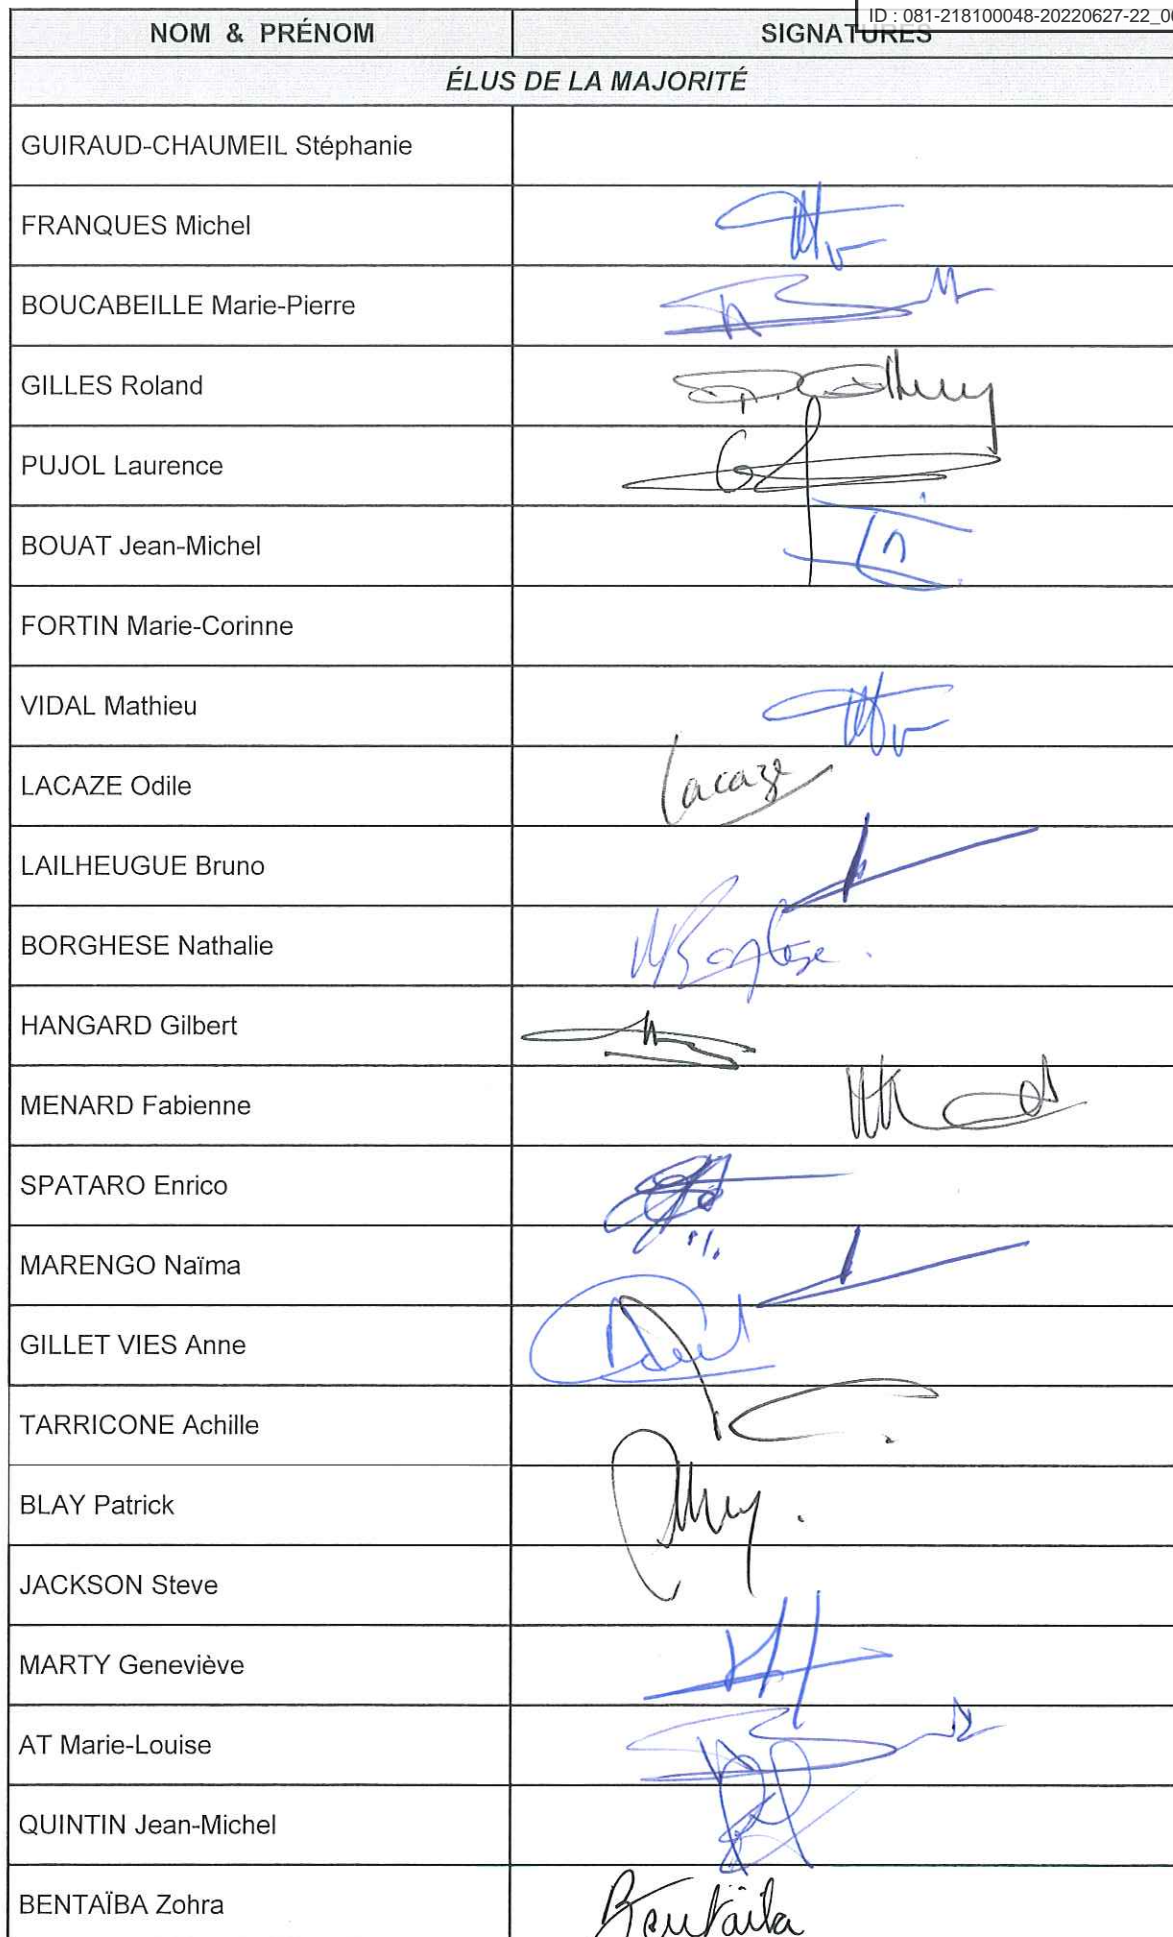 ID : 081-218100048-20220627-22_0
NOM & PRÉNOM SIGNATURES
ÉLUS DE LA MAJORITÉ
GUIRAUD-CHAUMEIL Stéphanie
FRANQUES Michel
BOUCABEILLE Marie-Pierre
GILLES Roland
PUJOL Laurence
BOUAT Jean-Michel
FORTIN Marie-Corinne
VIDAL Mathieu
LACAZE Odile Lacaze
LAILHEUGUE Bruno
BORGHESE Nathalie
HANGARD Gilbert
MENARD Fabienne
SPATARO Enrico
MARENGO Naïma
GILLET VIES Anne
TARRICONE Achille
BLAY Patrick
JACKSON Steve
MARTY Geneviève
AT Marie-Louise
QUINTIN Jean-Michel
BENTAÏBA Zohra Bentaïba